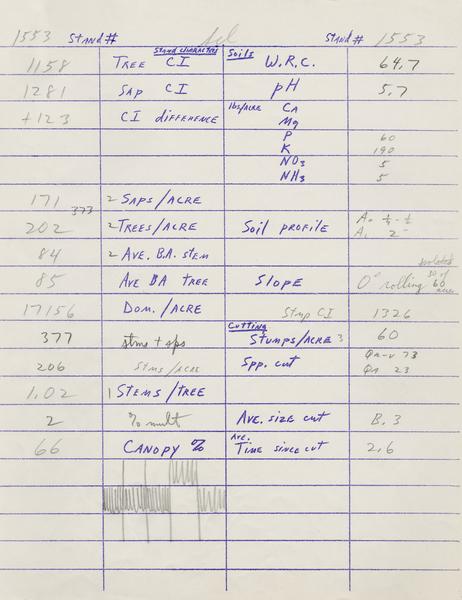 1553 STAND# STAND# 1553
STAND CHARACTERS Soils
1158 TREE CI W.R.C. 64.7
1281 SAP CI pH 5.7
+123 CI DIFFERENCE lbs/ACRE CA
Mg
P 60
K 190
NO3 5
NH3 5
171 2 SAPS/ACRE
373
202 2 TREES/ACRE Soil PROFILE A0 ¼-½
A1 2"
84 2 AVE. B.A. STEM
isolated
85 AVE BA TREE SLOPE 0° rolling 30 of 60 acres
17156 DOM./ACRE Stmp CI 1326
CUTTING
377 stms + sps STUMPS/ACRE 3 60
206 STMS/ACRE Spp. CUT Qu-v 73
Qa 23
1.02 1 STEMS/TREE
2 % mult AVE. SIZE CUT 8.3
66 CANOPY % AVE. TIME SINCE CUT 2.6